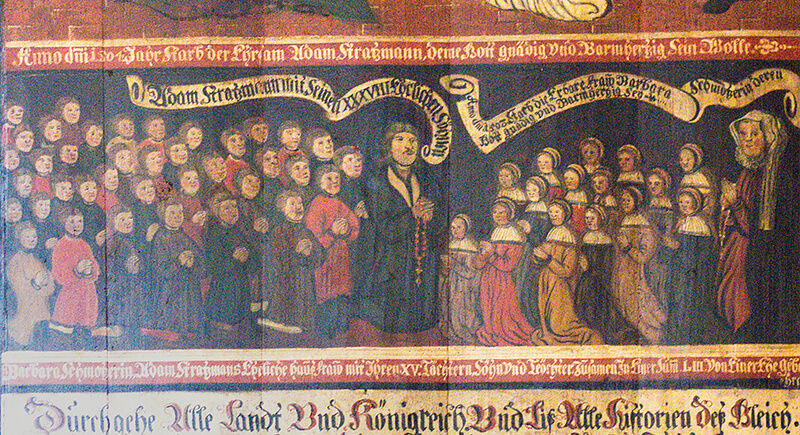 Anno dm̄ 1504 Jahr starb der Ehrsam Adam Stratzmann, deme Gott gnädig vnd Barmhertzig Sein Wolle.
Adam Stratzmann mit Seinen XXXVIII Ehrlichen Söhnen
Anno dm̄ 1503 starb die Erbare fraw Barbara Schmotzerin deren
Gott gnädig vnd Barmhertzig Sey
Barbara Schmotzerin, Adam Stratzmans Ehrliche hauß fraw mit Jhren XV. Töchtern, Söhn vnd Töchter zusamen In Einer Sum̄ LIII Von Einer Ehe gebo
Durchgehe Alle Landt Vnd Königreich, Vnd Liß Alle historien deß Gleich.